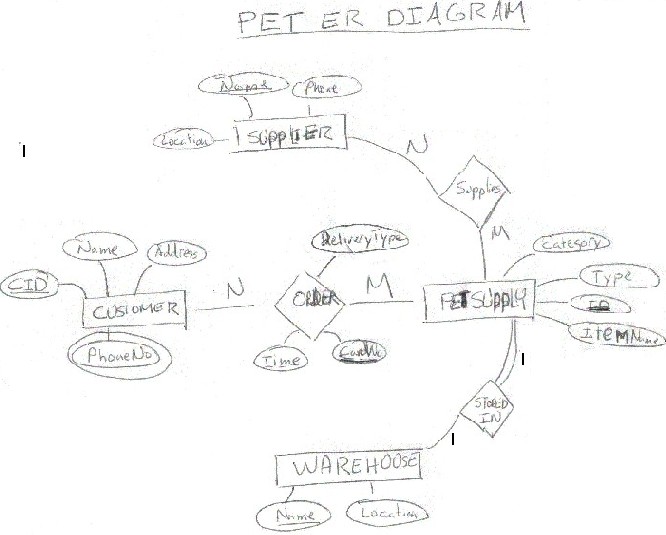 PET ER DIAGRAM
Name
Phone
Location
SUPPLIER
N
Supplies
M
Category
Name
Address
DeliveryType
CID
Type
N
ORDER
M
PETSUPPLY
ID
CUSTOMER
ItemName
PhoneNo
Time
STORED
IN
WAREHOOSE
Name
Location